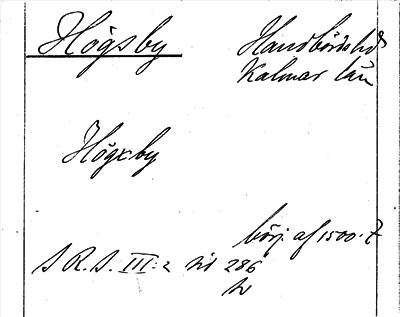 Högsby Handbörds hd
Kalmar län
Högxby
börj. af 1500-t
S R. S. III:2 sid 286